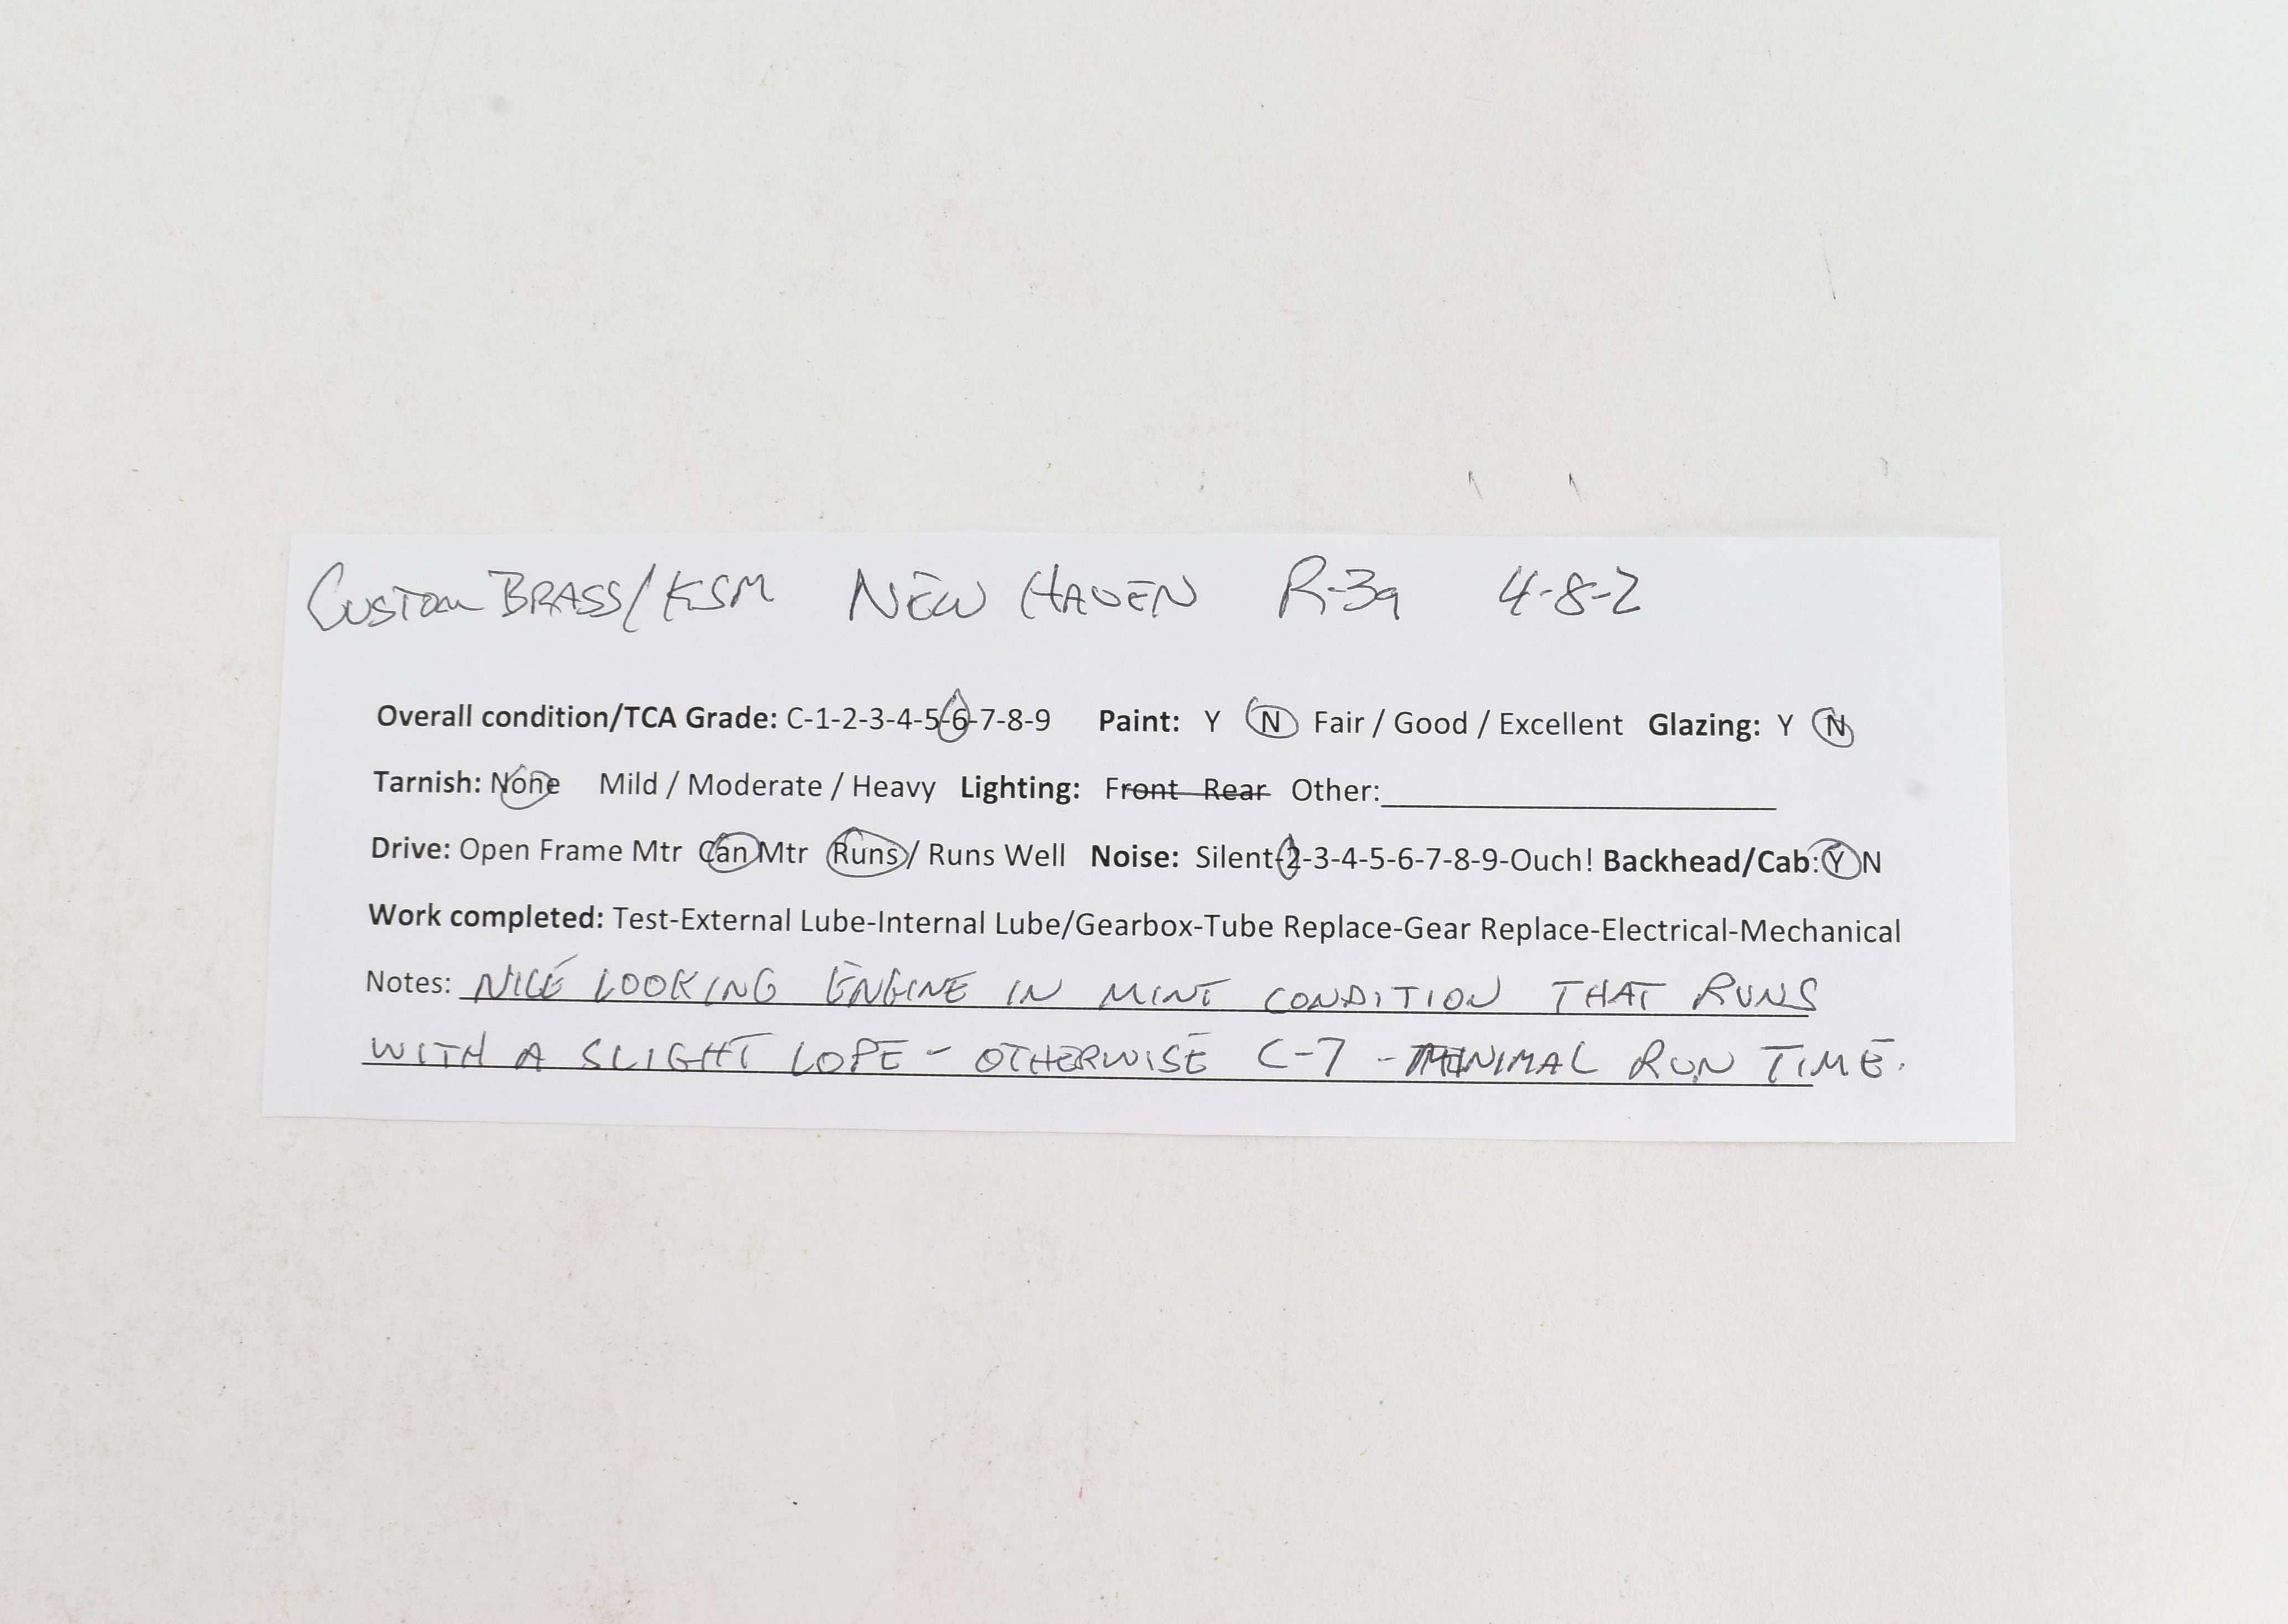 Custom Brass/KSM NEW HAVEN R-3a 4-8-2
Overall condition/TCA Grade: C-1-2-3-4-5-6-7-8-9 Paint: Y N Fair / Good / Excellent Glazing: Y N
Tarnish: None Mild / Moderate / Heavy Lighting: Front Rear Other:
Drive: Open Frame Mtr Can Mtr Runs / Runs Well Noise: Silent-2-3-4-5-6-7-8-9-Ouch! Backhead/Cab: Y N
Work completed: Test-External Lube-Internal Lube/Gearbox-Tube Replace-Gear Replace-Electrical-Mechanical
Notes: NICE LOOKING ENGINE IN MINT CONDITION THAT RUNS
WITH A SLIGHT LOPE - OTHERWISE C-7 - MINIMAL RUN TIME.